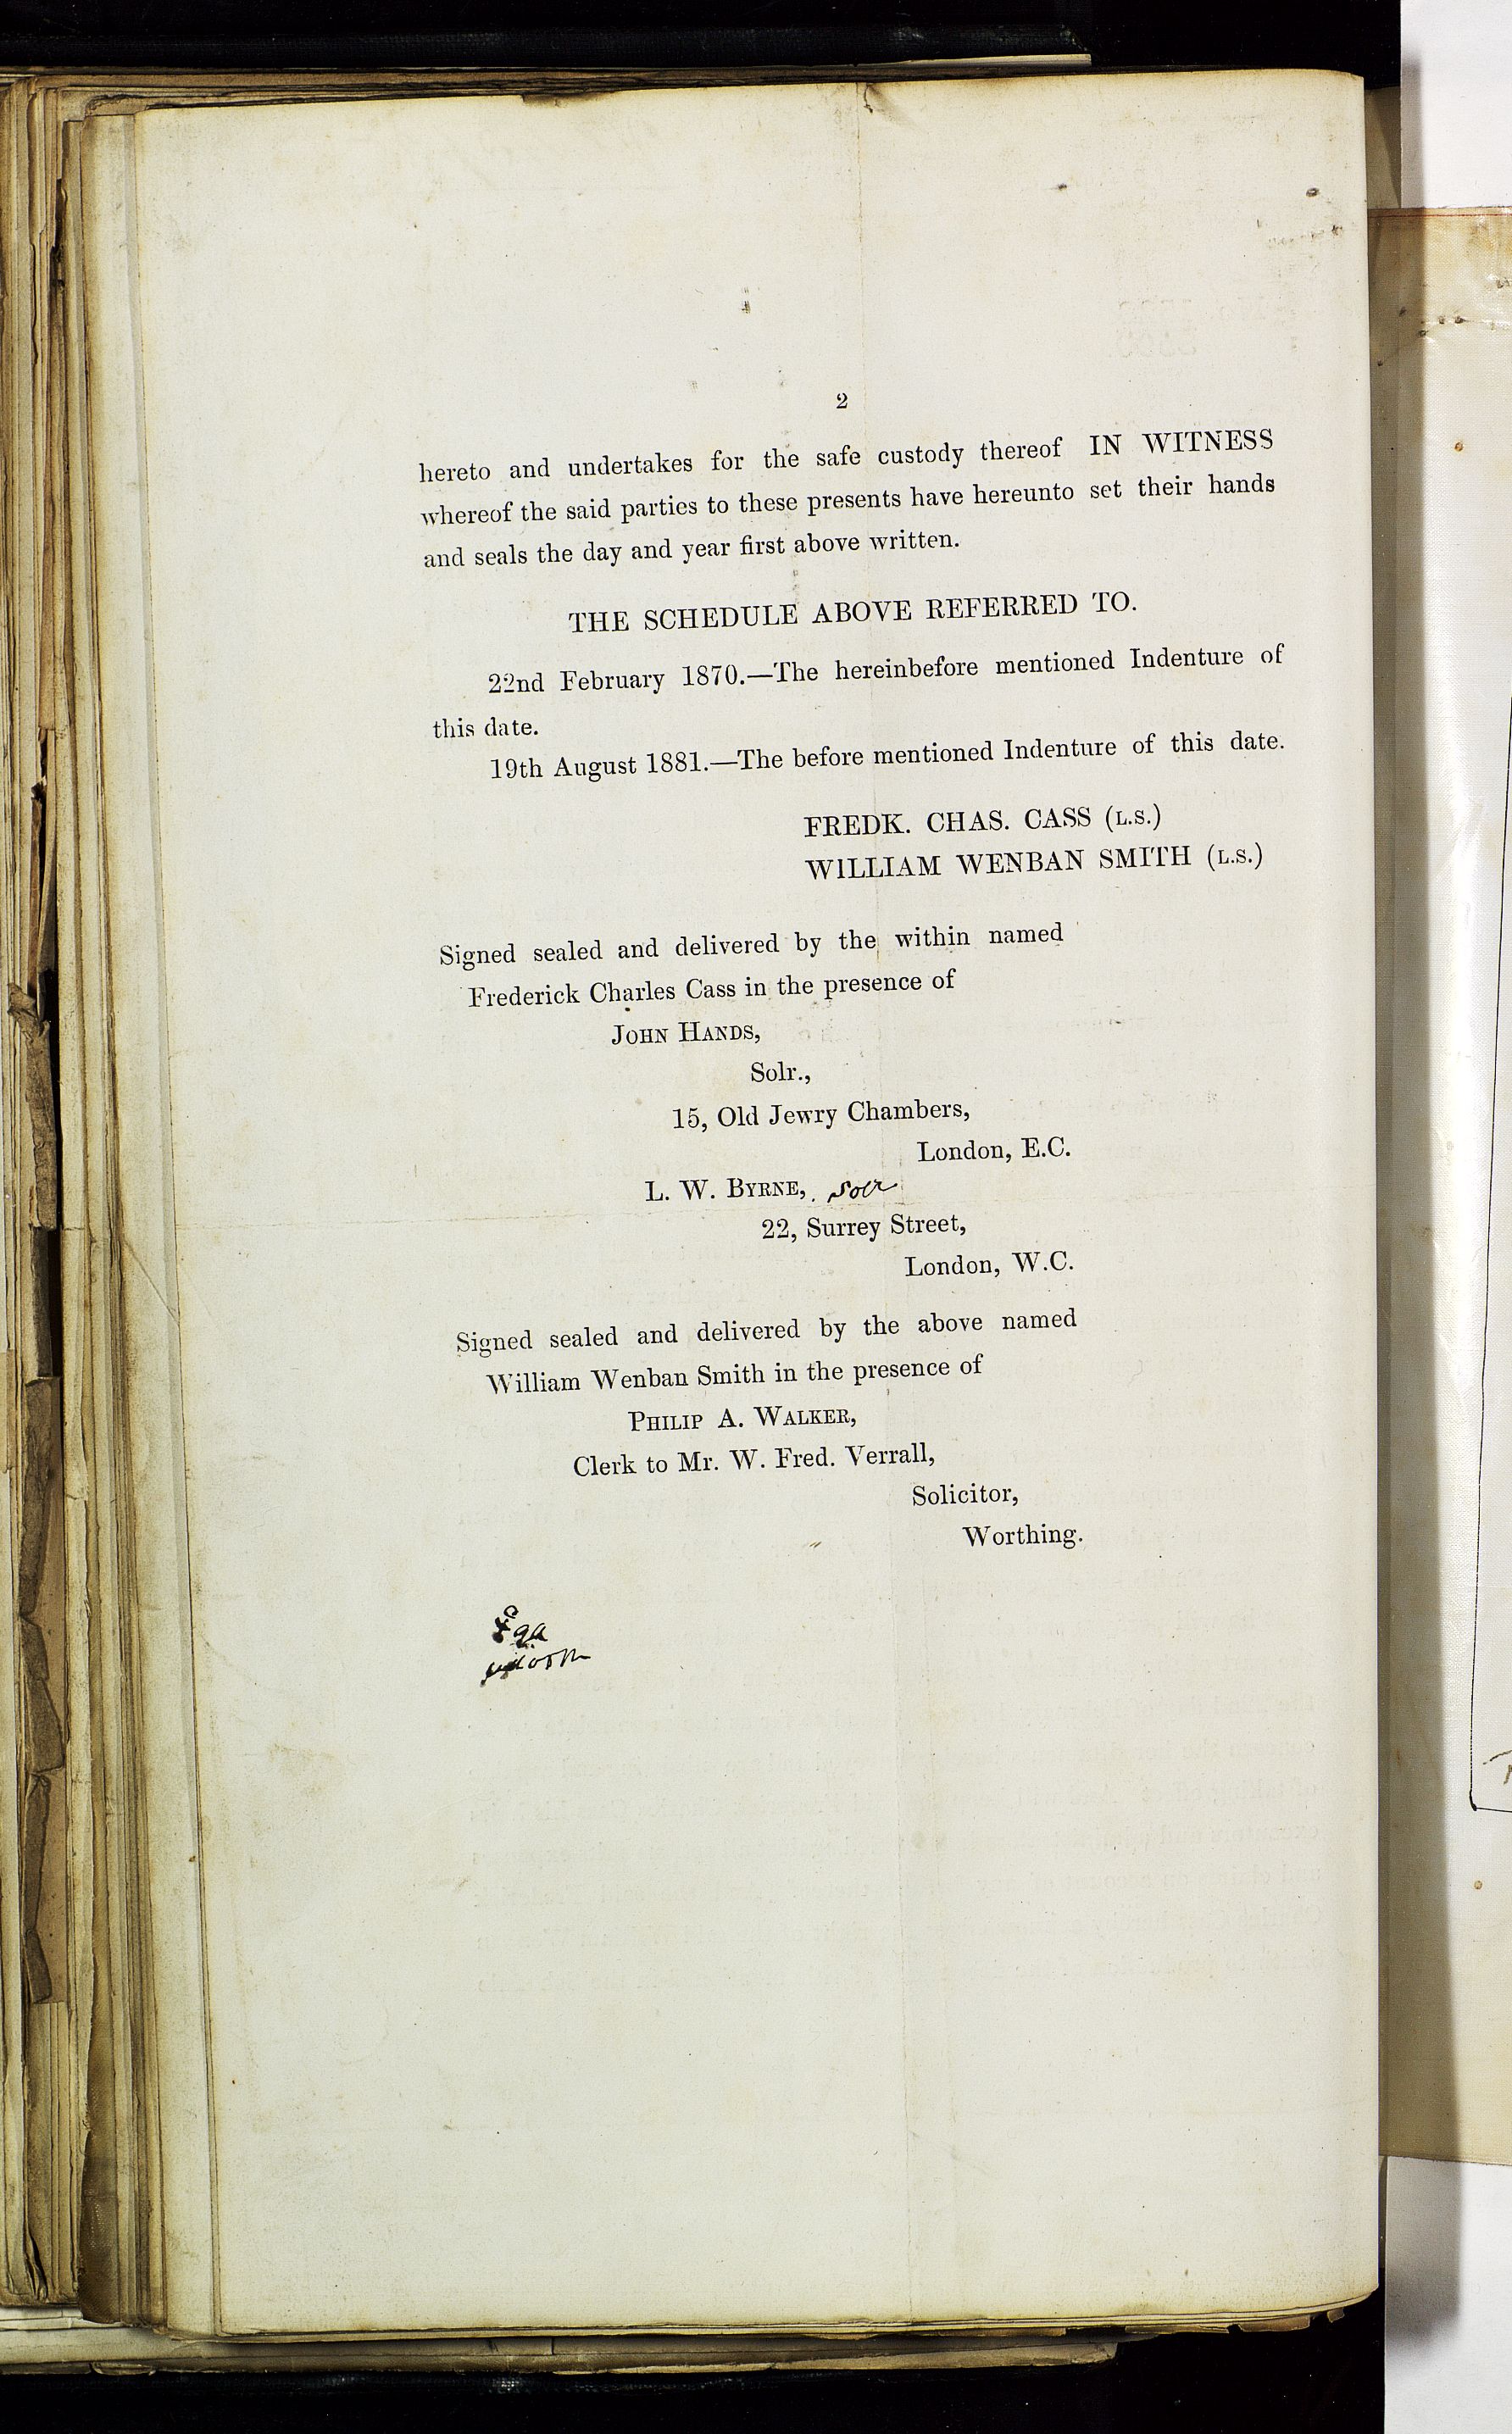 2
hereto and undertakes for the safe custody thereof IN WITNESS
whereof the said parties to these presents have hereunto set their hands
and seals the day and year first above written.
THE SCHEDULE ABOVE REFERRED TO.
22nd February 1870.—The hereinbefore mentioned Indenture of
this date.
19th August 1881.—The before mentioned Indenture of this date.
FREDK. CHAS. CASS (L.S.)
WILLIAM WENBAN SMITH (L.S.)
Signed sealed and delivered by the within named
Frederick Charles Cass in the presence of
JOHN HANDS,
Solr.,
15, Old Jewry Chambers,
London, E.C.
L. W. BYRNE, Solr
22, Surrey Street,
London, W.C.
Signed sealed and delivered by the above named
William Wenban Smith in the presence of
PHILIP A. WALKER,
Clerk to Mr. W. Fred. Verrall,
Solicitor,
Worthing.